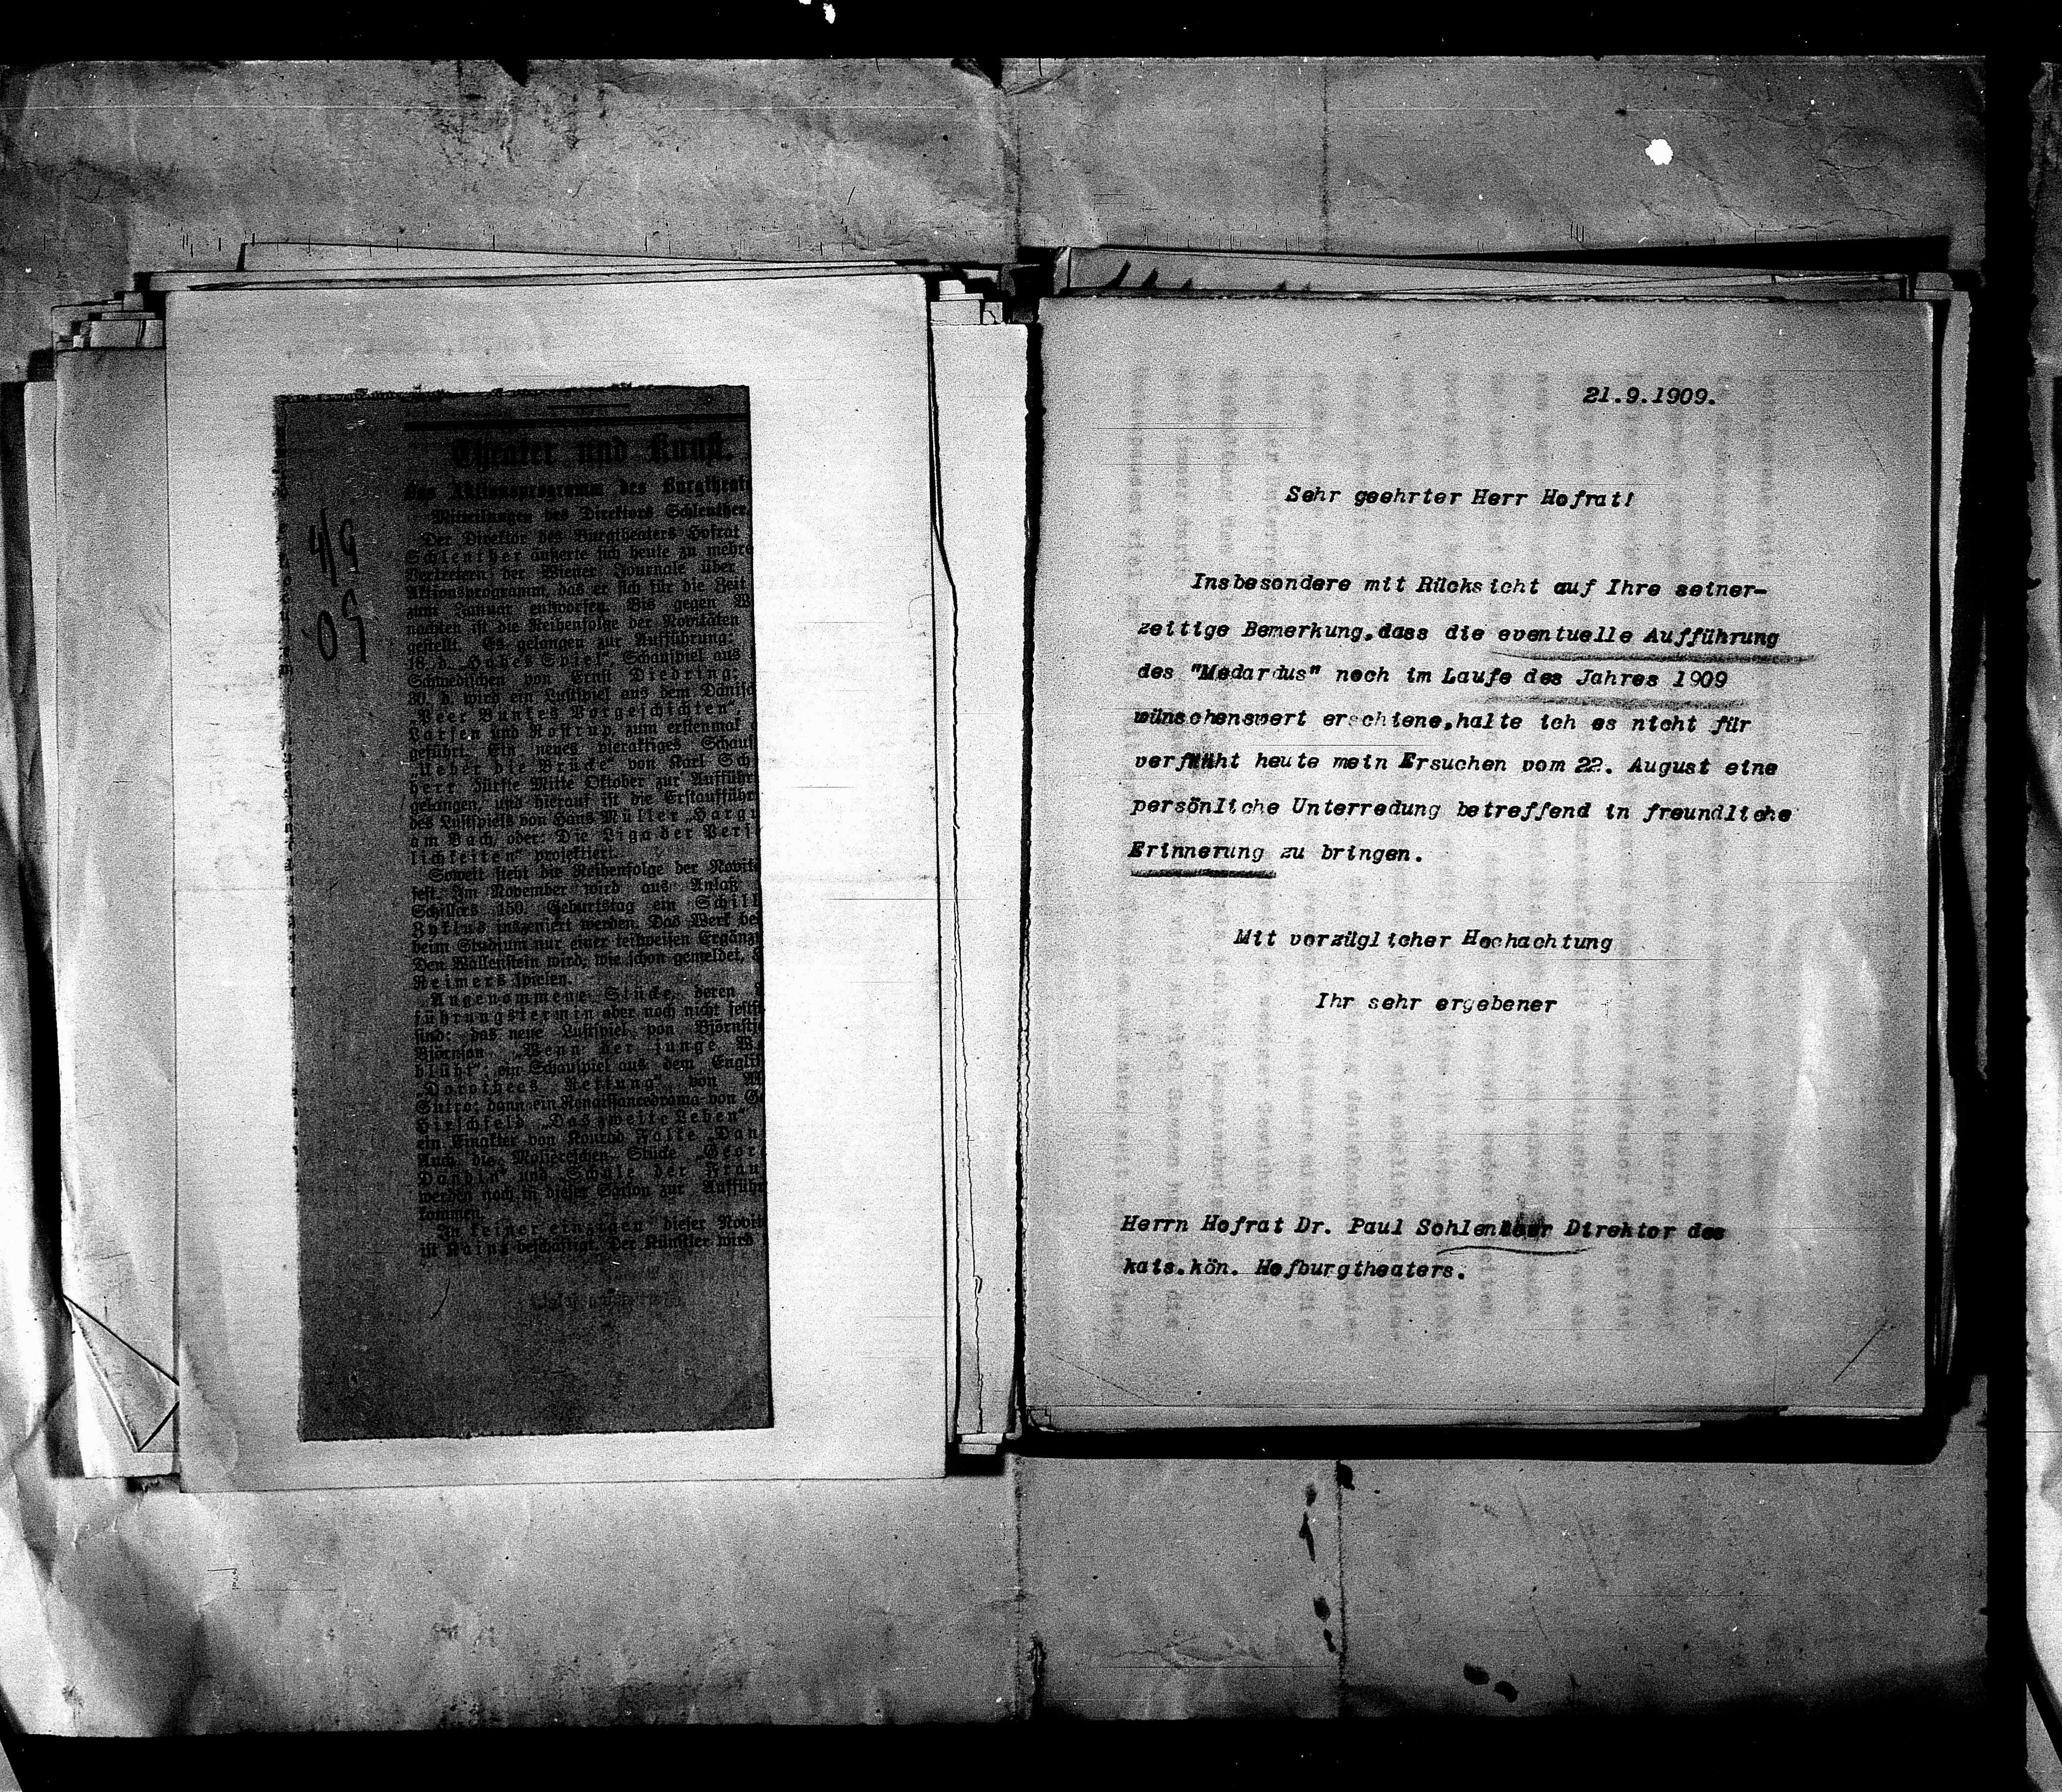 4/9
09
Theater und Kunst.
Das Aktionsprogramm des Burgtheat
Mitteilungen des Direktors Schlenther.
Der Direktor des Burgtheaters Hofrat
Schlenther äußerte sich heute zu mehre
Vertretern der Wiener Journale über
Aktionsprogramm, das er sich für die Zeit
zum Januar entworfen. Bis gegen W
nachten ist die Reihenfolge der Novitäten
gestellt. Es gelangen zur Aufführung:
18. d. „Hohes Spiel", Schauspiel aus
Schwedischen von Ernst Diedring;
30. d. wird ein Lustspiel aus dem Dänisc
„Peer Bunkes Vorgeschichten"
Larsen und Rostrup, zum erstenmal
geführt. Ein neues vieraktiges Schaus
„Ueber die Brücke" von Karl Sch
herr dürfte Mitte Oktober zur Aufführ
gelangen, und hierauf ist die Erstaufführ
des Lustspiels von Hans Müller „Hargu
am Bach, oder: Die Liga der Pers
lichkeiten" projektiert.
Soweit steht die Reihenfolge der Novitä
fest. Im November wird aus Anlaß
Schillers 150. Geburtstag ein Schill
Zyklus inszeniert werden. Das Werk be
beim Studium nur einer teilweisen Ergänz
Den Wallenstein wird, wie schon gemeldet,
Reimers spielen.
Angenommene Stücke, deren
führungstermin aber noch nicht festst
sind: das neue Lustspiel von Björnstje
Björnson „Wenn der junge W
blüht", ein Schauspiel aus dem Englis
„Dorothees Rettung" von Al
Sutro; dann ein Renaissancedrama von Ge
Hirschfeld „Das zweite Leben"
ein Einakter von Konrad Falke „Dan
Auch die Molièreschen Stücke „Geor
Dandin" und „Schule der Frau
werden noch in dieser Saison zur Aufführ
kommen.
In keiner einzigen dieser Novit
ist Kainz beschäftigt. Der Künstler wird
21.9.1909.
Sehr geehrter Herr Hofrat!
Insbesondere mit Rücksicht auf Ihre seiner-
zeitige Bemerkung,dass die eventuelle Aufführung
des "Medardus" noch im Laufe des Jahres 1909
wünschenswert erschiene,halte ich es nicht für
verfrüht heute mein Ersuchen vom 22. August eine
persönliche Unterredung betreffend in freundliche
Erinnerung zu bringen.
Mit vorzüglicher Hochachtung
Ihr sehr ergebener
Herrn Hofrat Dr. Paul Schlenther Direktor des
kais.kön. Hofburgtheaters.